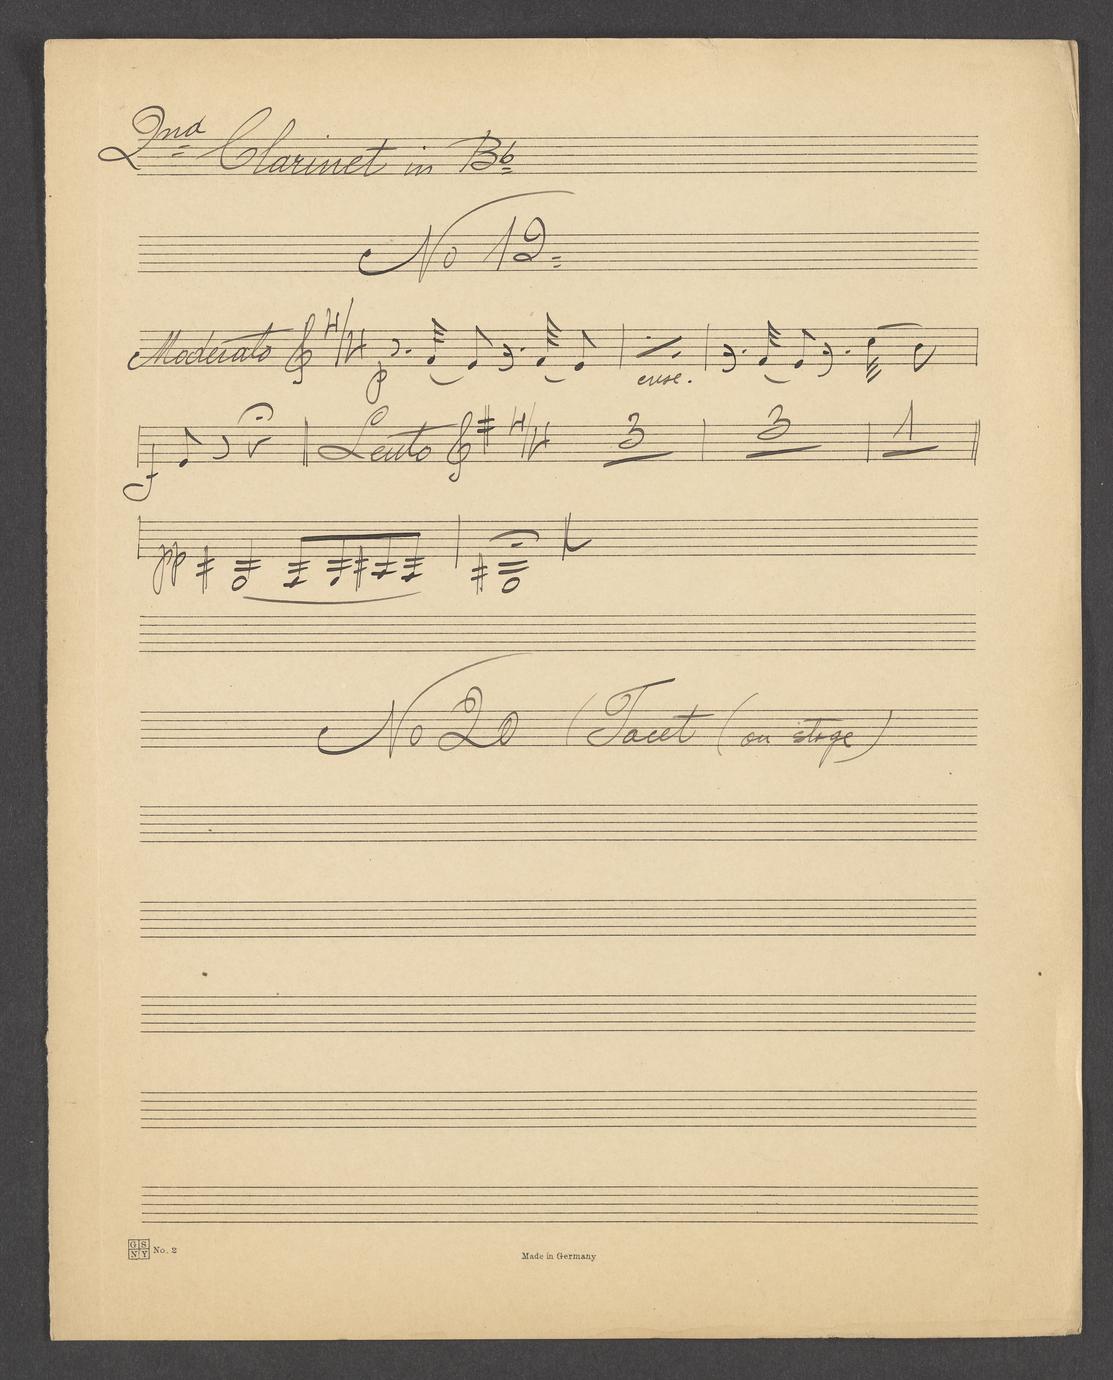 2nd Clarinet in Bb
No 19
Moderato 4/4 p
cresc.
f Lento 4/4 3 3 1
pp
No 20 (Tacet (on stage)
GS NY No. 2
Made in Germany